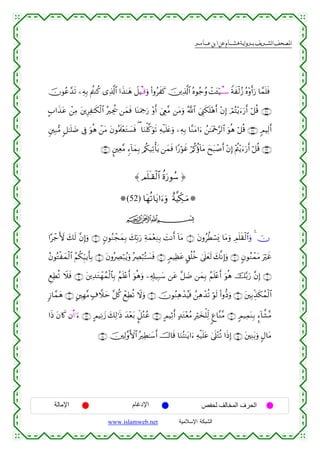 المصحف الشريف برواية هشام عن ابن عامر
فَلَمَّا رَأَوْهُ زُلْفَةً سِيئَتْ وُجُوهُ الَّذِينَ كَفَرُوا وَقِيلَ هَٰذَا الَّذِي كُنتُم بِهِ تَدَّعُونَ
قُلْ أَرَءَيْتُمْ إِنْ أَهْلَكَنِيَ اللَّهُ وَمَن مَّعِي أَوْ رَحِمَنَا فَمَن يُجِيرُ الْكَافِرِينَ مِنْ عَذَابٍ
أَلِيمٍ قُلْ هُوَ الرَّحْمَٰنُ ءَامَنَّا بِهِ وَعَلَيْهِ تَوَكَّلْنَا فَسَتَعْلَمُونَ مَنْ هُوَ فِي ضَلَالٍ مُّبِينٍ
قُلْ أَرَءَيْتُمْ إِنْ أَصْبَحَ مَاؤُكُمْ غَوْرًا فَمَن يَأْتِيكُم بِمَاءٍ مَّعِينٍ
سُورَةُ الْقَلَمِ
مَكِّيَّةٌ وَءَايَاتُهَا (52)
بسم الله الرحمن الرحيم
نٓ وَالْقَلَمِ وَمَا يَسْطُرُونَ مَا أَنتَ بِنِعْمَةِ رَبِّكَ بِمَجْنُونٍ وَإِنَّ لَكَ لَأَجْرًا
غَيْرَ مَمْنُونٍ وَإِنَّكَ لَعَلَىٰ خُلُقٍ عَظِيمٍ فَسَتُبْصِرُ وَيُبْصِرُونَ بِأَييِّكُمُ الْمَفْتُونُ
إِنَّ رَبَّكَ هُوَ أَعْلَمُ بِمَن ضَلَّ عَن سَبِيلِهِ وَهُوَ أَعْلَمُ بِالْمُهْتَدِينَ فَلَا تُطِعِ
الْمُكَذِّبِينَ وَدُّوا لَوْ تُدْهِنُ فَيُدْهِنُونَ وَلَا تُطِعْ كُلَّ حَلَّافٍ مَّهِينٍ هَمَّازٍ
مَّشَّاءٍ بِنَمِيمٍ مَّنَّاعٍ لِّلْخَيْرِ مُعْتَدٍ أَثِيمٍ عُتُلٍّ بَعْدَ ذَٰلِكَ زَنِيمٍ ءَأَن كَانَ ذَا
مَالٍ وَبَنِينَ إِذَا تُتْلَىٰ عَلَيْهِ ءَايَاتُنَا قَالَ أَسَاطِيرُ الْأَوَّلِينَ
الحرف المخالف لحفص الإدغام الإمالة
الشبكة الإسلامية www.islamweb.net